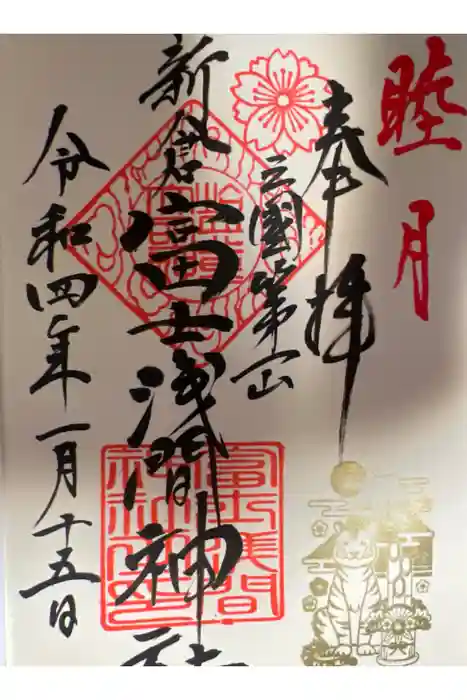 睦月
奉拝
三國第一山
新倉富士浅間神社
令和四年一月十五日
富士浅間
神社